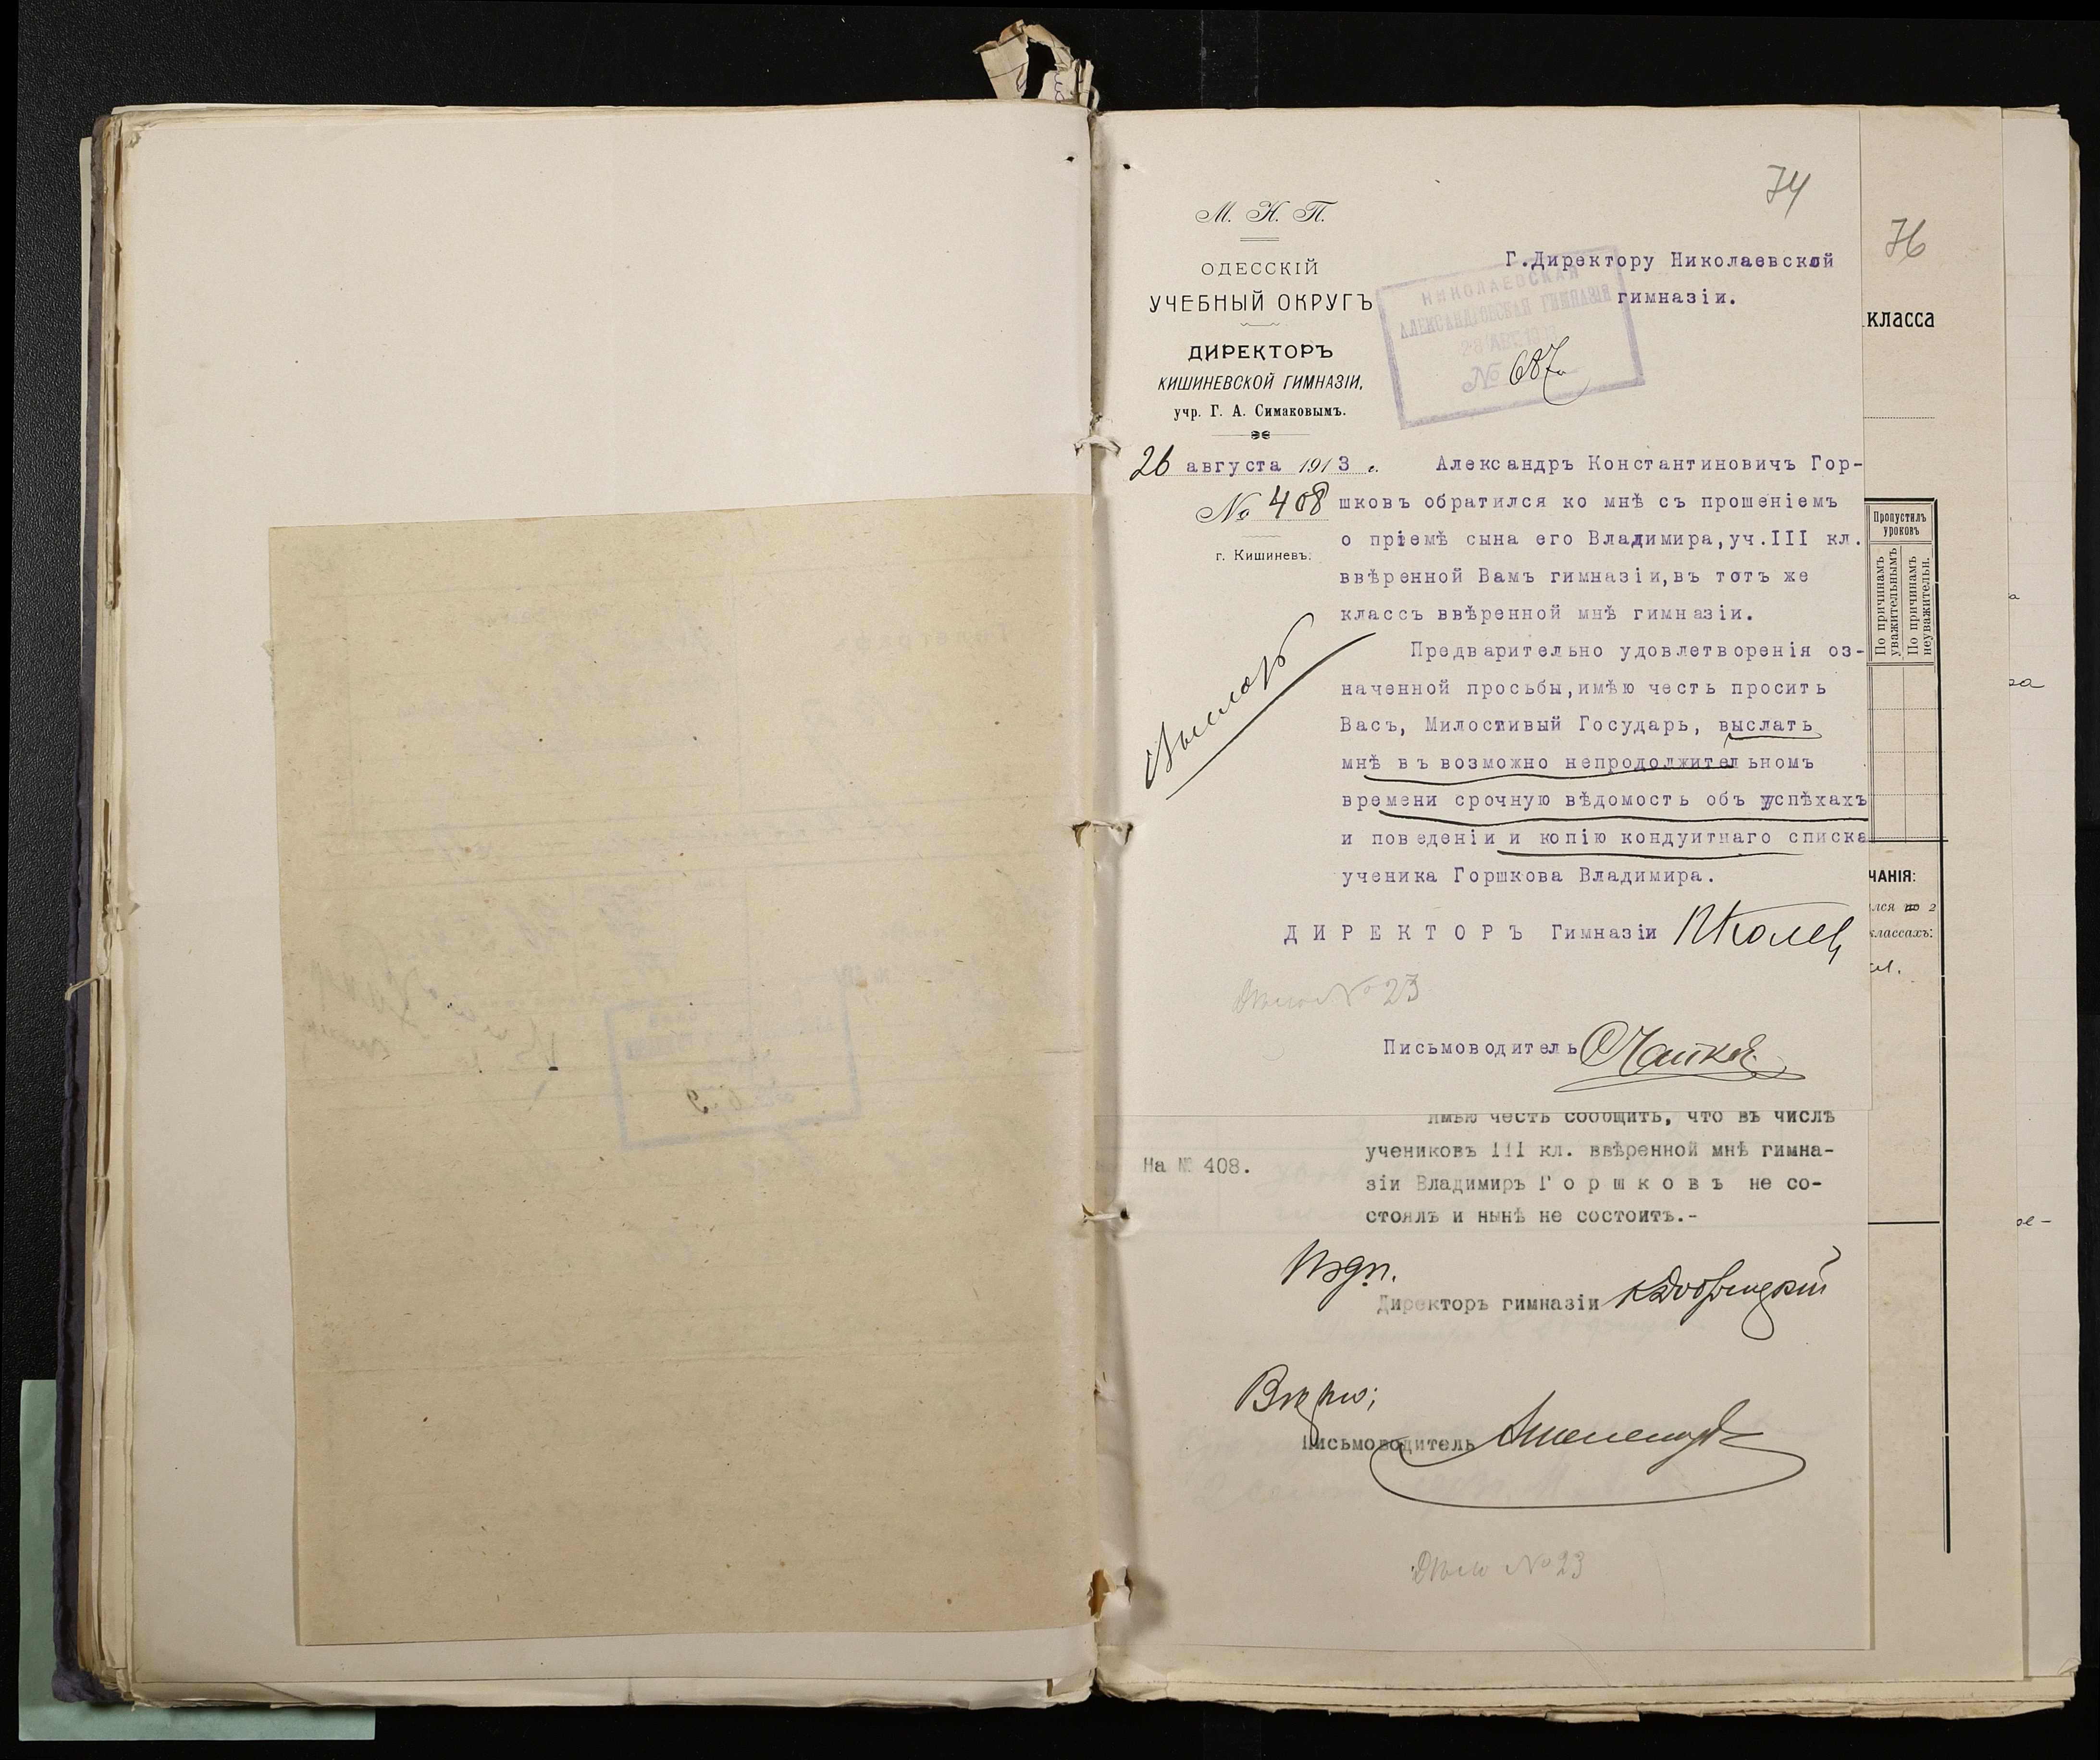 74
М. Н. П.
ОДЕССКІЙ
УЧЕБНЫЙ ОКРУГЪ
ДИРЕКТОРЪ
КИШИНЕВСКОЙ ГИМНАЗІИ,
учр. Г. А. Симаковымъ.
26 августа 1913 г.
№ 408
г. Кишиневъ.
Г.Директору Николаевской
гимназіи.
НИКОЛАЕВСКАЯ
АЛЕКСАНДРОВСКАЯ ГИМНАЗІЯ
28 АВГ. 1913
№ 687
Александръ Константиновичъ Гор-
шковъ обратился ко мнѣ съ прошеніемъ
о пріемѣ сына его Владимира,уч.III кл.
ввѣренной Вамъ гимназіи,въ тотъ же
классъ ввѣренной мнѣ гимназіи.
Предварительно удовлетворенія оз-
наченной просьбы,имѣю честь просить
Васъ, Милостивый Государь, выслать
мнѣ въ возможно непродолжительномъ
времени срочную вѣдомость объ успѣхахъ
и поведеніи и копію кондуитнаго списка
ученика Горшкова Владимира.
ДИРЕКТОРЪ Гимназіи
Дѣло № 23
Письмоводитель
имѣю честь сообщить, что въ числѣ
На № 408.
учениковъ III кл. ввѣренной мнѣ гимна-
зіи Владимиръ Горшковъ не со-
стоялъ и нынѣ не состоитъ.-
Подп.
Директоръ гимназіи
Вѣрно:
Письмоводитель
Дѣло № 23
76
класса
Пропустилъ
уроковъ
По причинамъ
уважительнымъ
По причинамъ
неуважительн.
ЧАНІЯ:
лся по 2
классахъ: